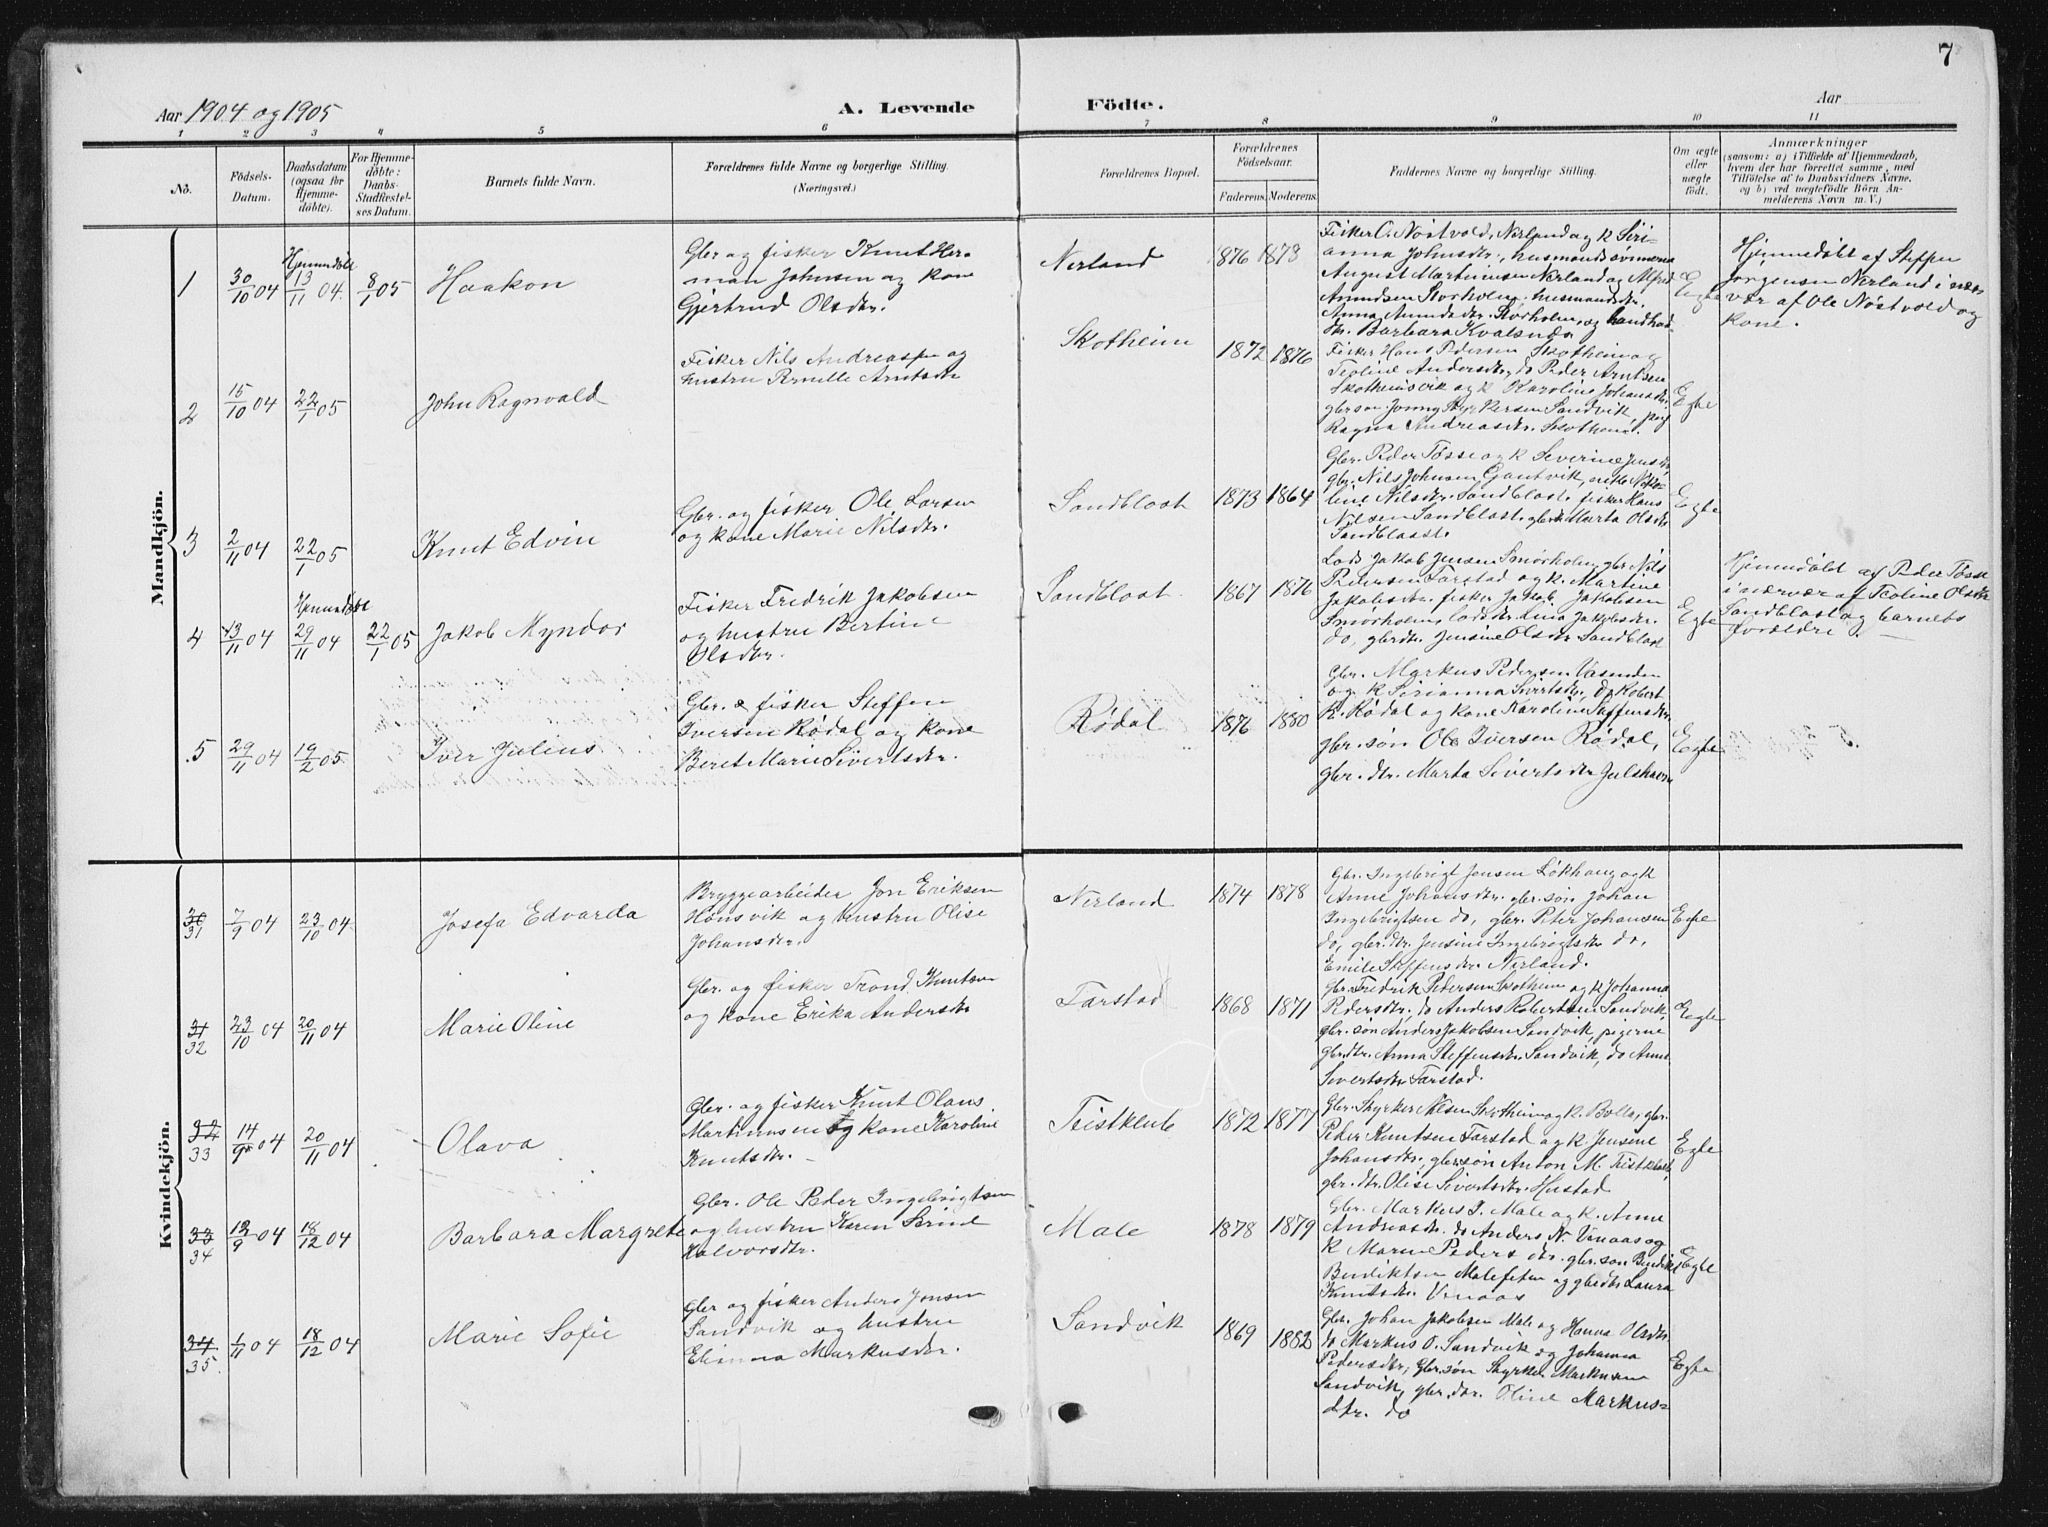 7
Aar 1904 og 1905
A. Levende
Födte.
Aar
1 2 3 4 5 6 7 8 9 10 11
No.
Födsels-Datum.
Daabsdatum (ogsaa for Hjemme-døbte).
For Hjemme-døbte: Daabs-Stadfæstel-ses Datum.
Barnets fulde Navn.
Forældrenes fulde Navne og borgerlige Stilling.
(Næringsvei.)
Forældrenes Bopæl.
Forældrenes Födselsaar.
Faderens. Moderens.
Faddernes Navne og borgerlige Stilling.
Om ægte eller uægte födt.
Anmærkninger
(saasom: a) i Tilfælde af Hjemmedaab,
hvem der har forrettet samme, med
Tilföielse af to Daabsvidners Navne,
og b) ved uægtefödte Börn An-
melderens Navn m. V.)
Mandkjön.
1
30/10 04
Hjemmedöbt
13/11 04
8/1 05
Haakon
Gbr og fisker Knut Her-
man Johnsen og kone
Gjertrud Olsdtr.
Nerland
1876 1873
Fisker O. Nöstvold, Nerland og k Seri-
anna Johnsdtr.,
August Martinusen Nerland og Alfred
Amundsen Storholm, husmandsdtr.
Anna Amundsdtr. Storholm, og
dtr. Barbara Kvalsnes
Egte
Hjemmedöbt af Steffen
Jörgensen Nerland i nær
vær af Ole Nöstvold og
kone.
2
15/10 04
22/1 05
John Ragnvald
Fisker Nils Andreassen og
hustru Pernille Arntsdtr
Skotheim
1872 1876
Fisker Hans Pedersen Skotheim og
Teoline Andersdtr, do Peder Arntsen
Skotheimsvik og k Karoline Johansdtr.
gbr søn Jonny Styrkersen Sandvik, pig
Ragna Andreasdtr. Skotheim.
Egte
3
2/11 04
22/1 05
Knut Edvin
Gbr. og fisker Ole Larsen
og kone Marie Nilsdtr.
Sandblaast
1873 1864
Gbr. Peder Tösse og k Severine Jensdtr
gbr. Nils Johnsen Gantvik,
line Nilsdtr. Sandblast, fisker Hans
Nilsen Sandblast, Marta Olsdtr
Sandblaast.
Egte
4
13/11 04
Hjemmedöbt
29/11 04
22/1 05
Jakob Myndor
Fisker Fredrik Jakobsen
og hustru Bertine
Olsdtr.
Sandblaast.
1867 1876
Lods Jakob Jensen Smörholm, gbr Nils
Pedersen Farstad og k. Martine
Jakobsdtr. fisker Jakob Jakobsen
Smörholm, lodsdtr. Lina Jakobsdtr.
do, gbrdtr. Jensine Olsdtr Sandblast
Egte
Hjemmedöbt af Peder Tösse
i nærvær af Teoline Olsdtr
Sandblast og barnets
forældre.
5
29/11 04
19/2 05
Iver Julius
Gbr. & fisker Steffen
Iversen Rödal og kone
Beret Marie Sivertsdtr.
Rödal
1876 1880
Gbr. Markus Pedersen Vasenden
og k Serianna Sivertsdtr, do Robert
K. Rödal og kone Karoline Steffensdtr.
gbr. søn Ole Iversen Rödal,
gbr. dtr. Marta Sivertsdtr Julshavn
Egte
Kvindekjön.
30
31
7/9 04
23/10 04
Josefa Edvarda
Bryggearbeider Jon Eriksen
Hönsvik og hustru Olise
Johansdtr.
Nerland
1874 1878
Gbr. Ingebrigt Jensen Lökhaug og k
Anne Johansdtr. gbr. søn Johan
Ingebrigtsen do, gbr. Peter Johansen
do, gbr. dtr. Jensine Ingebrigtsdtr do,
Emile Steffensdtr. Nerland.
Egte
31
32
23/10 04
20/11 04
Marie Oline
Gbr. og fisker Trond Knutsen
og kone Erika Andersdtr
Farstad
1868 1871
Gbr. Fredrik Pedersen Skotheim og k Johanna
Pedersdtr. do Anders Robertsen Sandvik
gbr. søn Anders Jakobsen Sandvik, pigerne
gbr dtr. Anna Steffensdtr. Sandvik, do Anne
Sivertsdtr Farstad.
Egte
32
33
14/9 04
20/11 04
Olava
Gbr. og fisker Knut Olaus
Martinusen og kone Karoline
Knutsdtr.
Teistklub
1872 1877
Gbr. Styrker Nilsen Skotheim og k. Bolla, gbr.
Peder Knutsen Farstad og k. Jensine
Johansdtr., gbr søn Anton M. Teistklub,
gbr. dtr. Olise Sivertsdtr. Hustad
Egte
33
34
12/9 04
18/12 04
Barbara Margrete
Gbr. Ole Peder Ingebrigtsen
og hustru Karen Serine
Halvorsdtr.
Male
1878 1879
Gbr. Markus P. Male og k. Anne
Andreasdtr. do Anders N. Vinaas og
k Maren Pedersdtr. gbr. søn Bendik
Bendiktsen Malefeten og gbrdtr Laura
Knutsdtr. Vinaas
Egte
34
35
1/11 04
18/12 04
Marie Sofie
Gbr og fisker Anders Jonsen
Sandvik og hustru
Elianna Markusdtr.
Sandvik
1869 1882
Gbr. Johan Jakobsen Male og Hanna Olsdtr.
do Markus O. Sandvik og Johanna
Pedersdtr, Gbr. søn Styrker Markusen
Sandvik, gbr. dtr. Oline Markus=
dtr. do
Egte